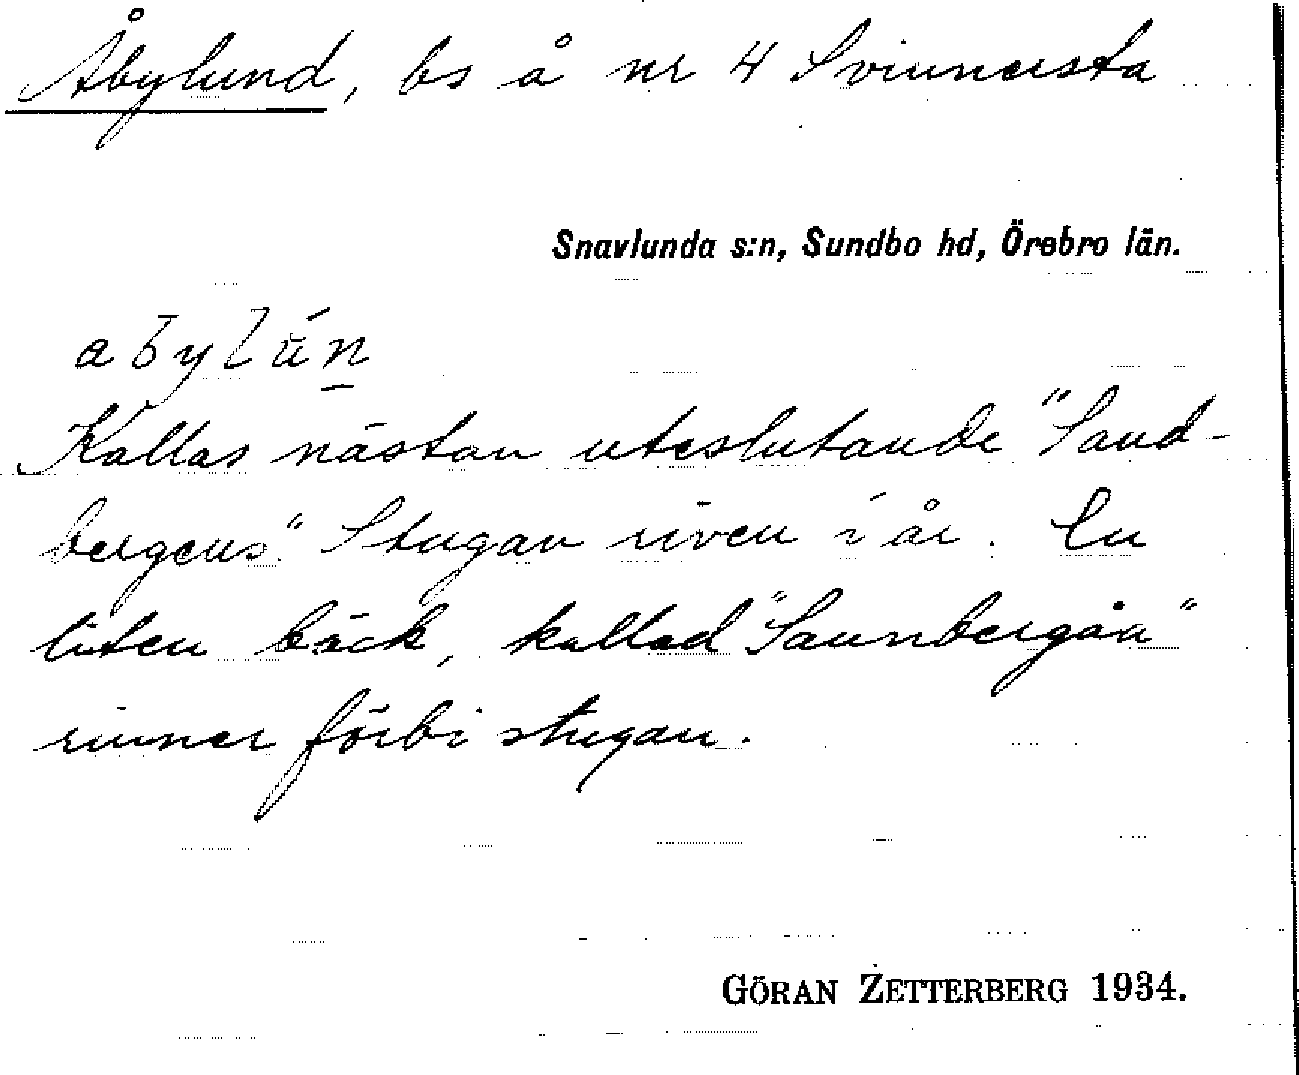 Åbylund, bs å nr 4 Svinnersta
Snavlunda s:n, Sundbo hd, Örebro län.
Kallas nästan uteslutande "Sand-
bergens". Stugan riven i år. En
liten bäck, kallad "Sannbergåa"
rinner förbi stugan.
GÖRAN ZETTERBERG 1934.